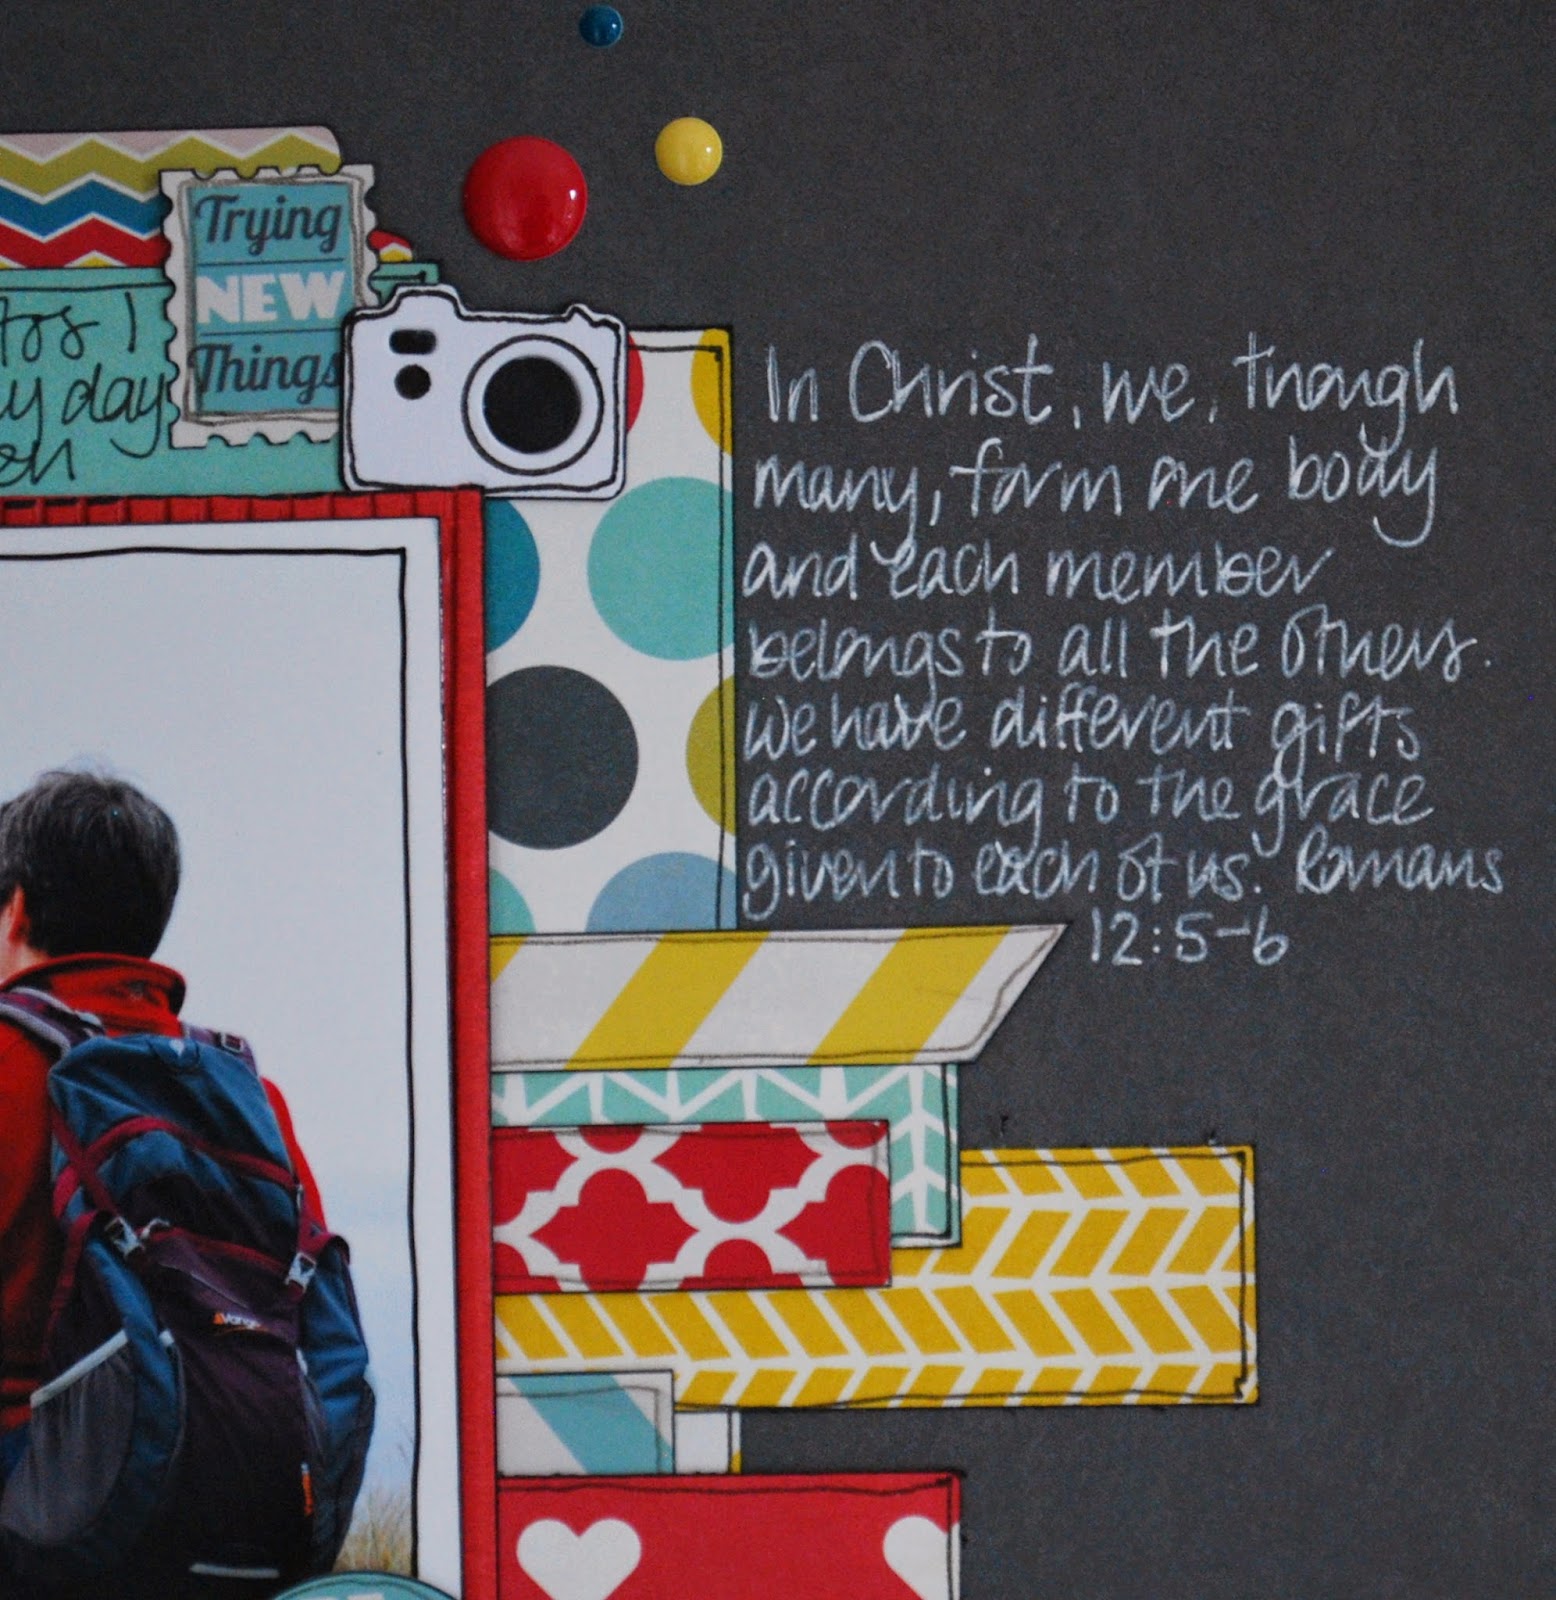 Trying
NEW
Things
I
day
In Christ, we, though
many, form one body
and each member
belongs to all the others.
We have different gifts
according to the grace
given to each of us. Romans
12:5-6